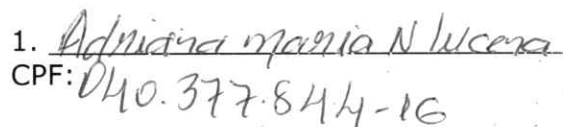 1. Adriana maria N lucena
CPF: 040.377.844-16